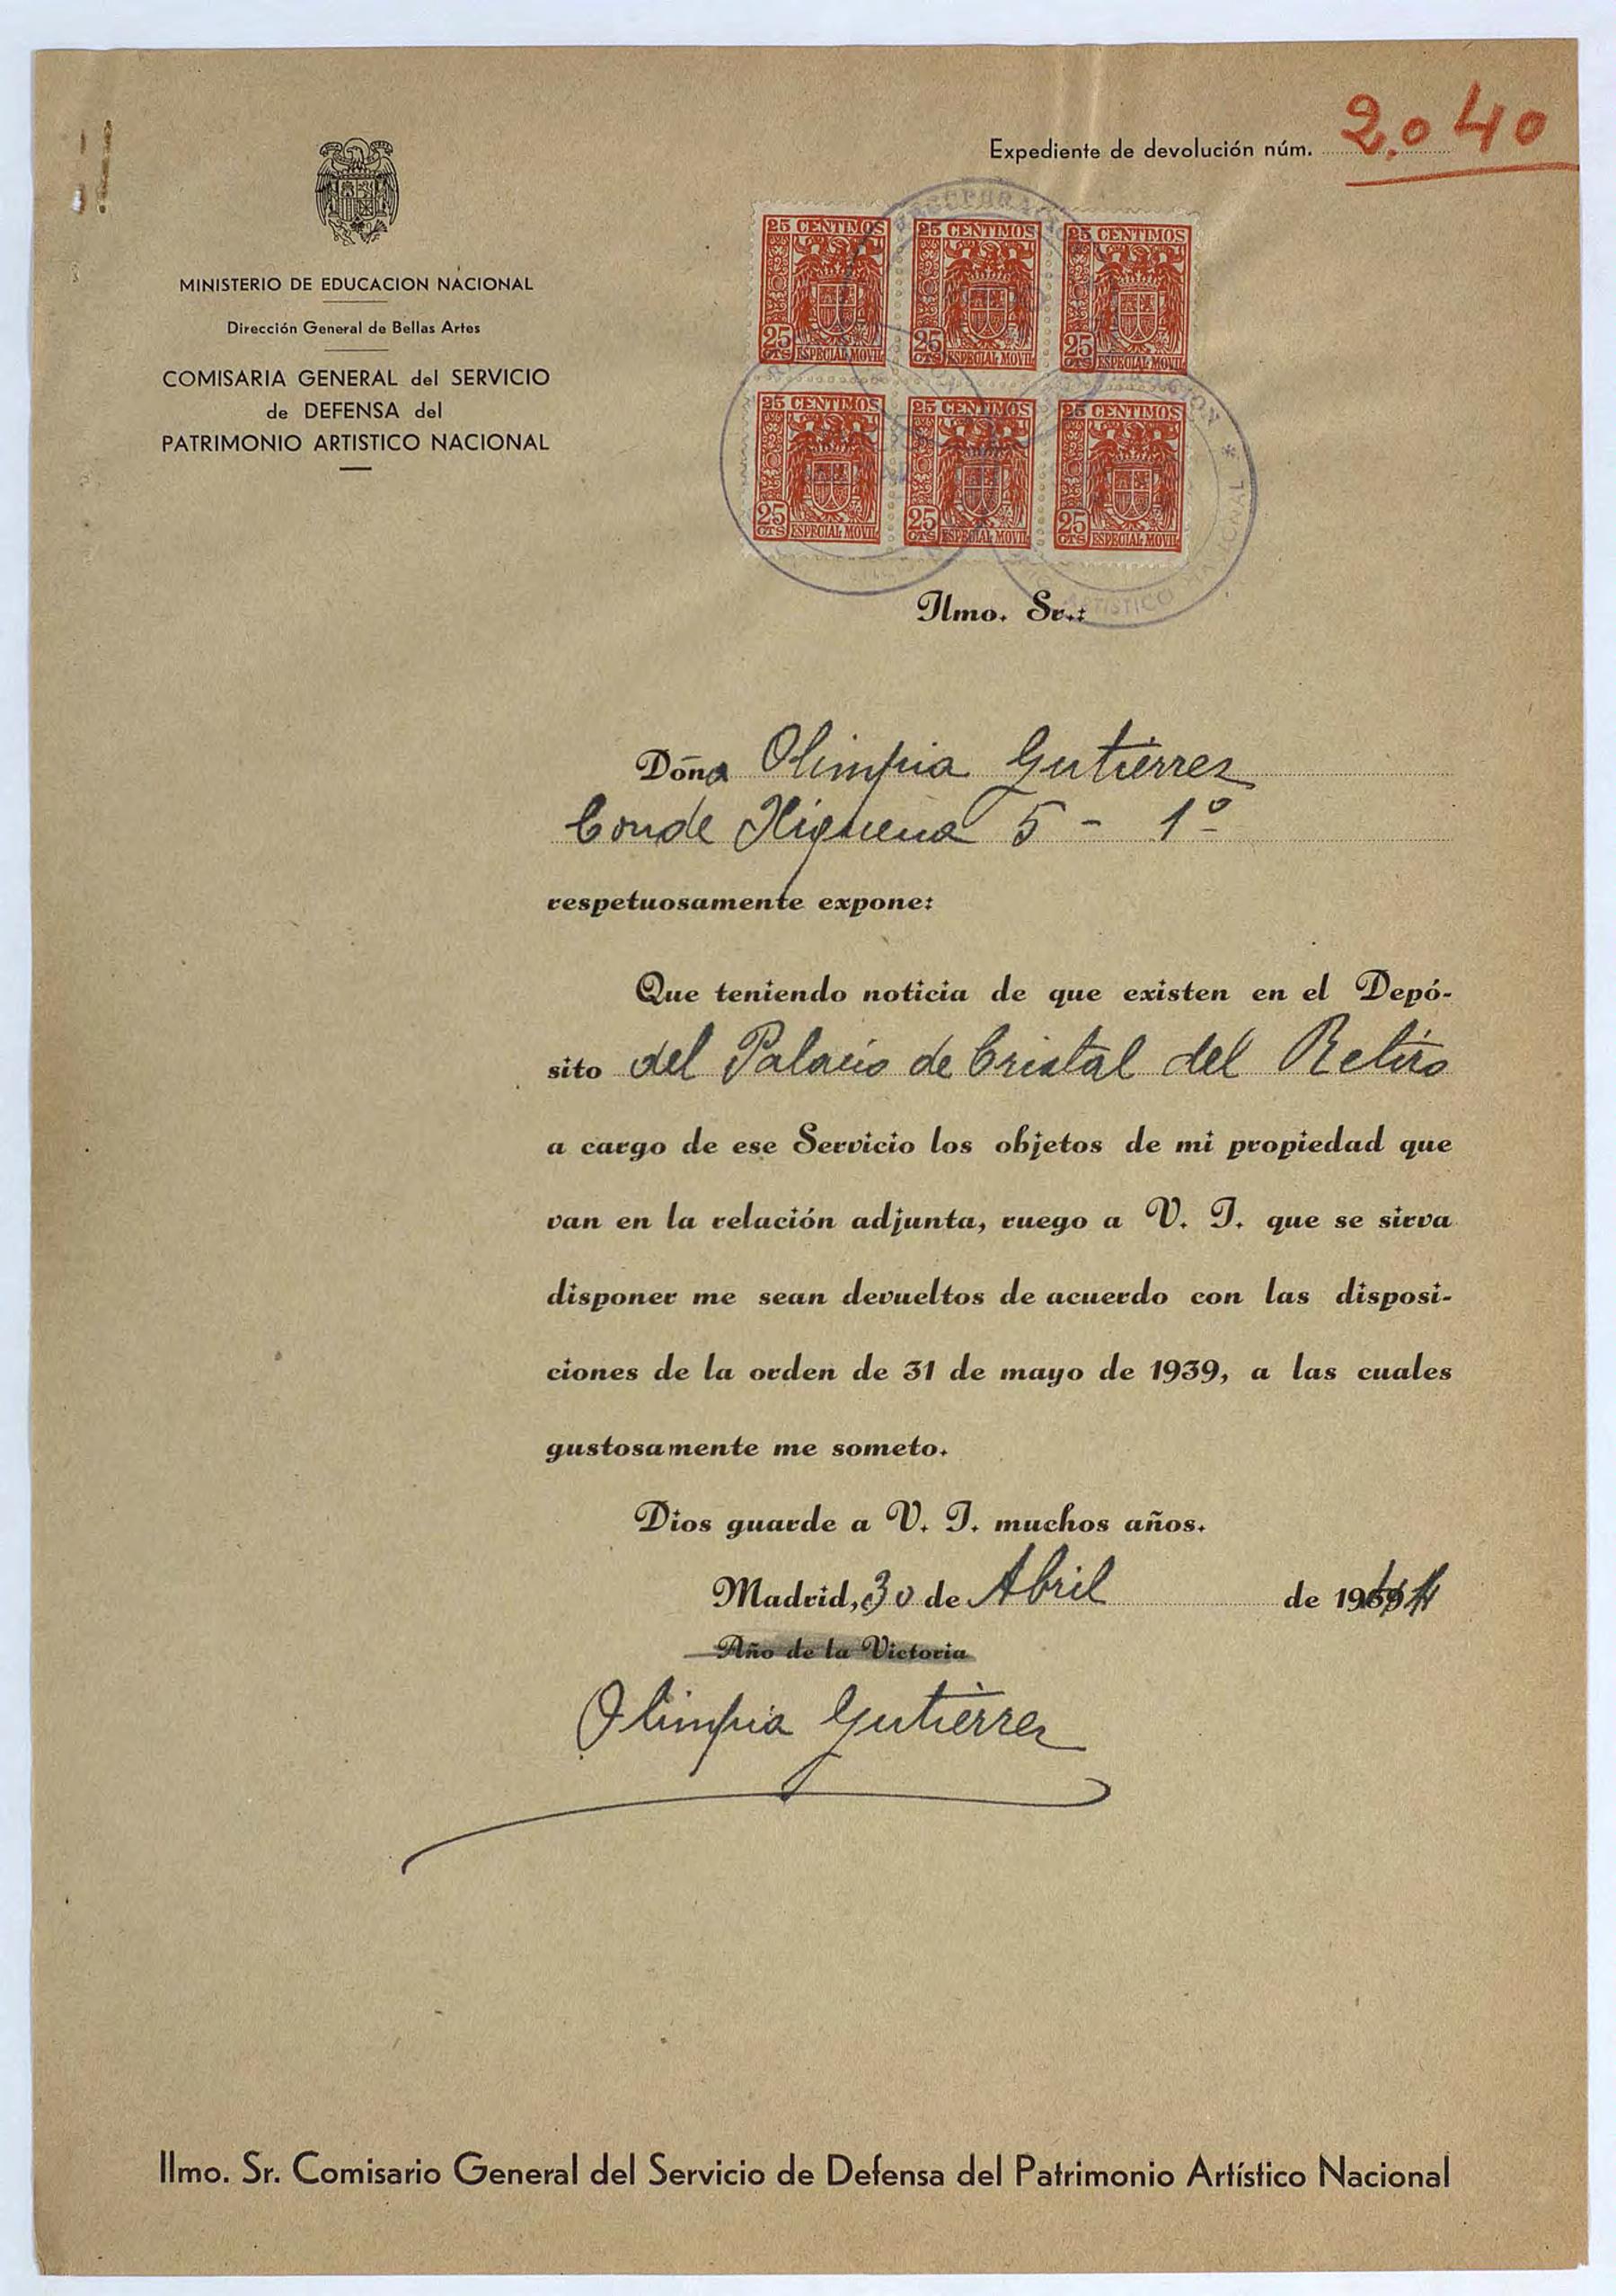 Expediente de devolución núm. 2.040
MINISTERIO DE EDUCACION NACIONAL
Dirección General de Bellas Artes
COMISARIA GENERAL del SERVICIO
de DEFENSA del
PATRIMONIO ARTISTICO NACIONAL
25 CENTIMOS 25 CENTIMOS 25 CENTIMOS
25 CTS ESPECIAL MOVIL 25 CTS ESPECIAL MOVIL 25 CTS ESPECIAL MOVIL
25 CENTIMOS 25 CENTIMOS 25 CENTIMOS
25 CTS ESPECIAL MOVIL 25 CTS ESPECIAL MOVIL 25 CTS ESPECIAL MOVIL
ARTISTICO NACIONAL *
Ilmo. Sr.:
Doña Olimpia Gutierrez
Conde Xiquena 5 - 1º
respetuosamente expone:
Que teniendo noticia de que existen en el Depó-
sito del Palacio de Cristal del Retiro
a cargo de ese Servicio los objetos de mi propiedad que
van en la relación adjunta, ruego a V. I. que se sirva
disponer me sean devueltos de acuerdo con las disposi-
ciones de la orden de 31 de mayo de 1939, a las cuales
gustosamente me someto.
Dios guarde a V. I. muchos años.
Madrid, 30 de Abril de 19
Año de la Victoria
Olimpia Gutierrez
Ilmo. Sr. Comisario General del Servicio de Defensa del Patrimonio Artístico Nacional